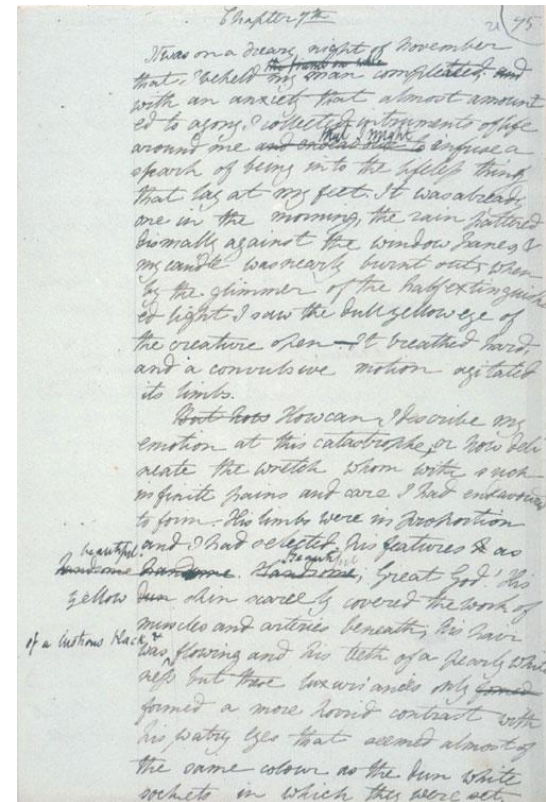 Chapter 7th
21 95
It was on a dreary night of November
that I beheld the frame on whic my man compleated, and
with an anxiety that almost amount
ed to agony, I collected instruments of life
around me and endeavour to that I might infuse a
spark of being into the lifeless thing
that lay at my feet. It was already
one in the morning, the rain pattered
dismally against the window panes, &
my candle was nearly burnt out, when
by the glimmer of the half extinguish
ed light I saw the dull yellow eye of
the creature open — It breathed hard,
and a convulsive motion agitated
its limbs.
But how How can I describe my
emotion at this catastrophe, or how deli
neate the wretch whom with such
infinite pains and care I had endeavoured
to form. His limbs were in proportion
and I had selected his features & as
beautiful
handsome handsome. Handsome, Beautiful, Great God! His
yellow dun skin scarcely covered the work of
muscles and arteries beneath; his hair
of a lustrous black, &
was flowing and his teeth of a pearly white
ness but these luxuriances only formed
formed a more horrid contrast with
his watry eyes that seemed almost of
the same colour as the dun white
sockets in which they were set,